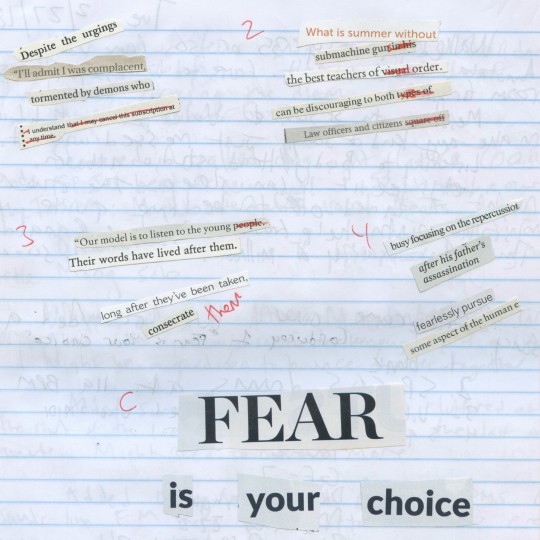 Despite the urgings
"I'll admit I was complacent,
tormented by demons who
I understand that I may cancel this subscription at
any time.
2
What is summer without
submachine guns in his
the best teachers of visual order.
can be discouraging to both types of
Law officers and citizens square off
3
"Our model is to listen to the young people.
Their words have lived after them.
long after they've been taken,
consecrate them
4
busy focusing on the repercussion
after his father's
assassination
fearlessly pursue
some aspect of the human e
C
FEAR
is your choice